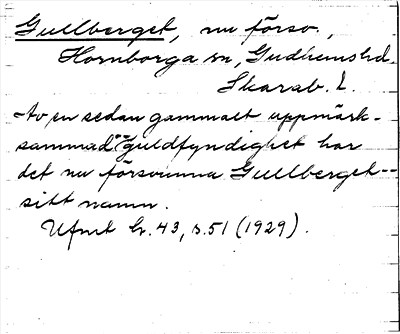 Gullberget, nu försv.,
Hornborga sn, Gudhemshd.
Skarab. l.
Av en sedan gammalt uppmärk-
sammad "guldfyndighet har
det nu försvunna Gullberget
sitt namn.
Ufmt br. 43, s. 51 (1929).